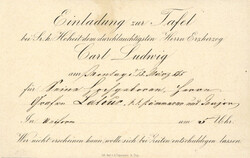 Einladung zur Tafel
bei Sr. k. Hoheit dem durchlauchtigsten Herrn Erzherzog
Carl Ludwig
am Samstag 12. März
für Seine Hochgeboren, Herrn
Grafen k.k. Kämmerer und
In um 5 Uhr.
Wer nicht erscheinen kann, wolle sich bei Zeiten entschuldigen lassen.